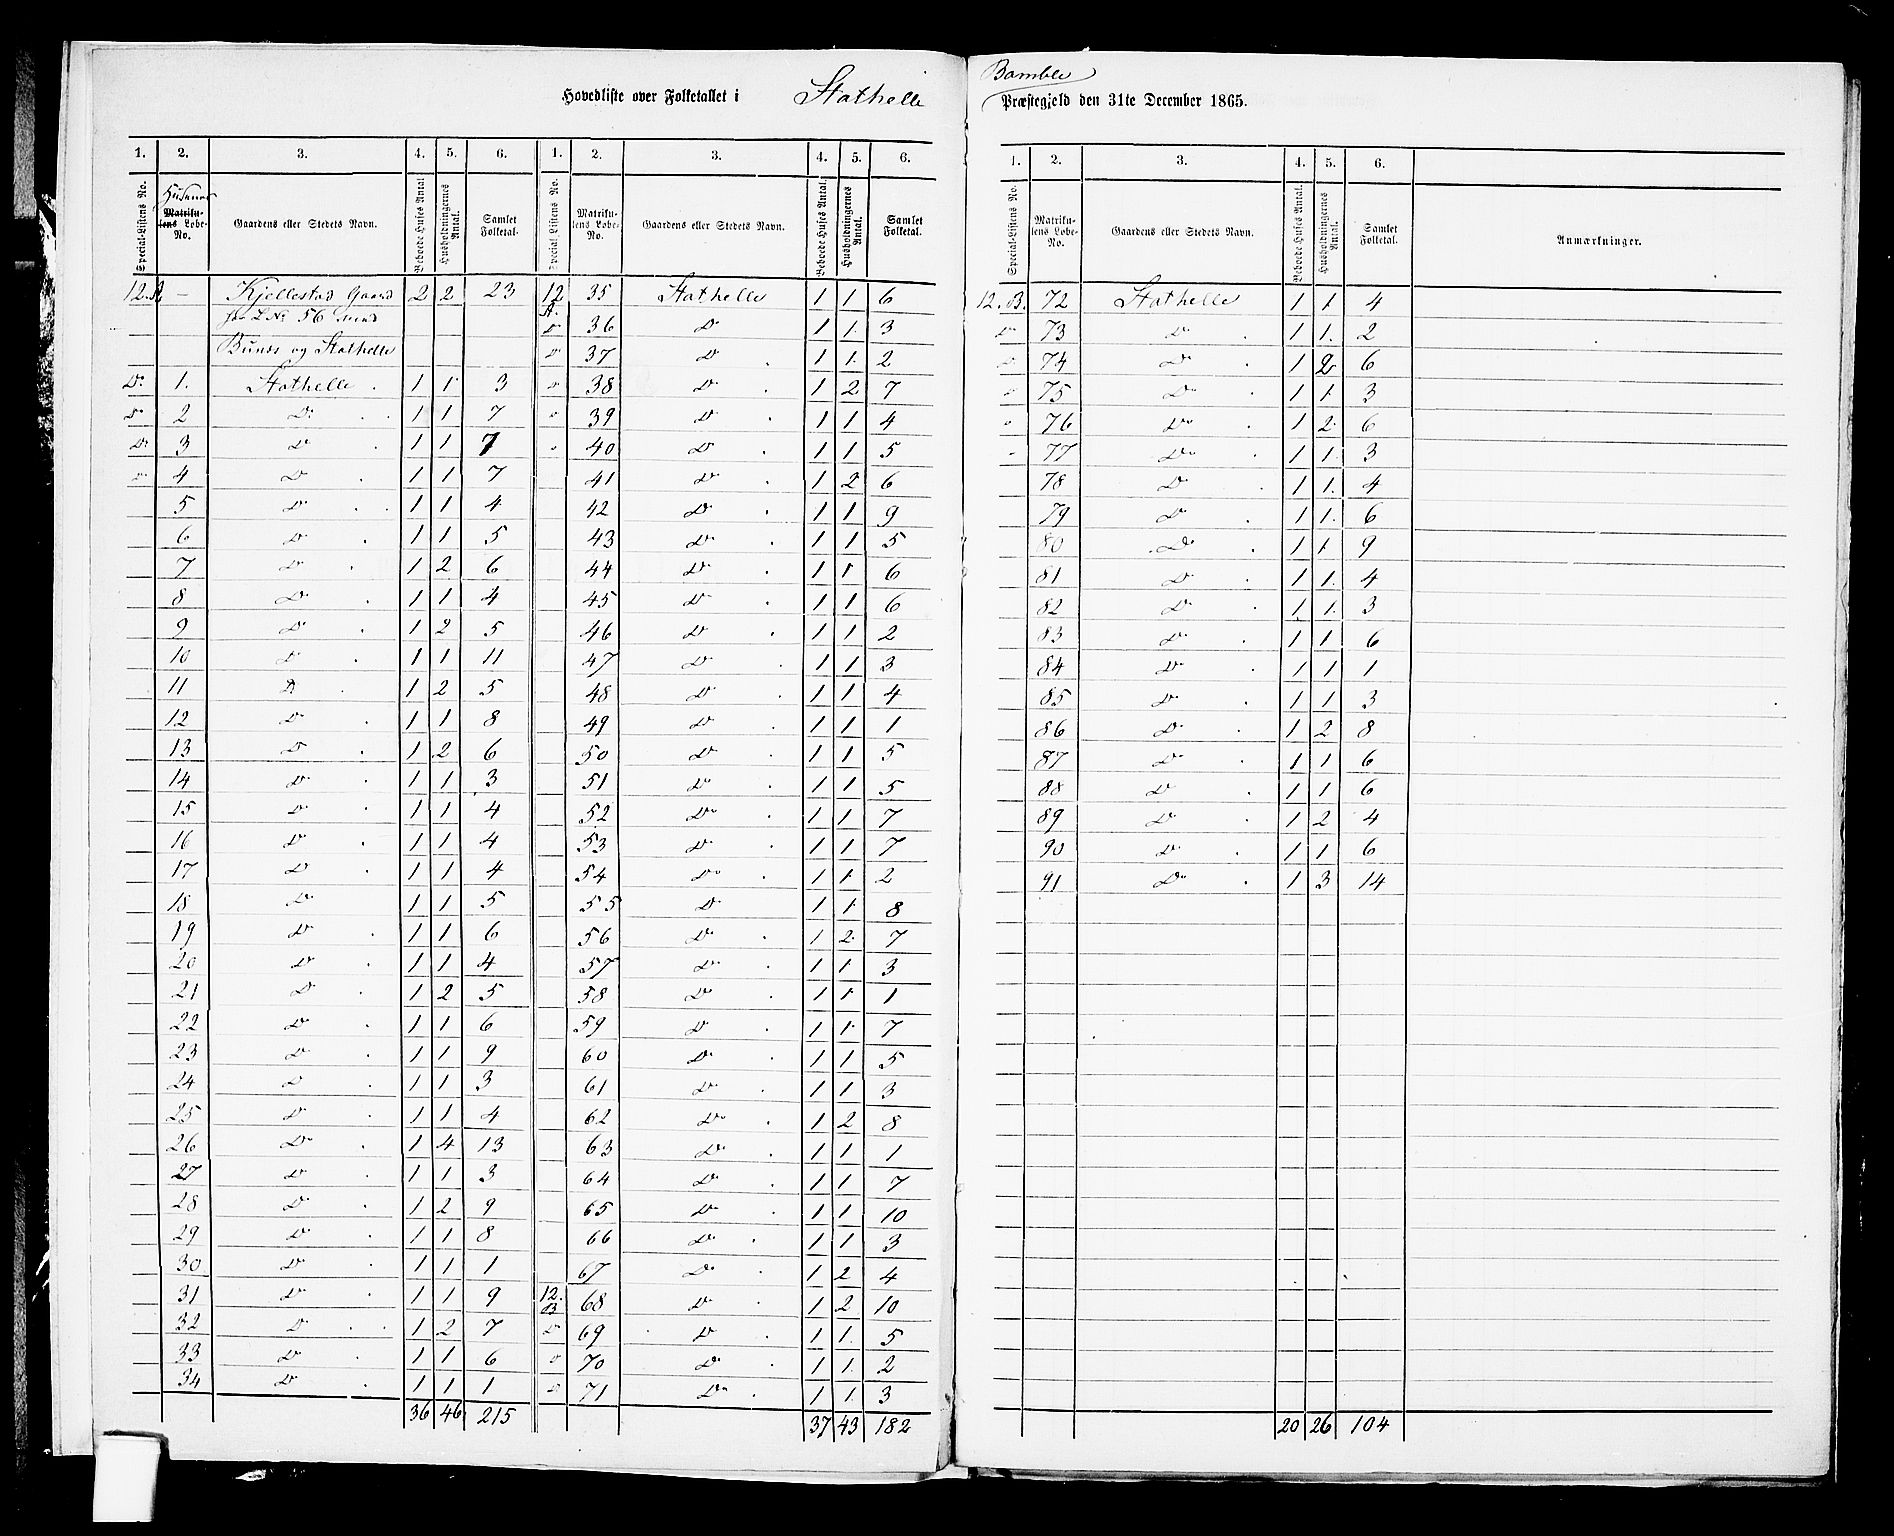 Hovedliste over Folketallet i Stathelle
Bamble
Præstegjeld den 31te December 1865.
1. 2. 3. 4. 5. 6. 1. 2. 3. 4. 5. 6.
Special-Listens No. Husenes Matrikulens Løbe-No. Gaardens eller Stedets Navn. Beboede Huses Antal. Husholdningernes Antal. Samlet Folketal. Special-Listens No. Matrikulens Løbe-No. Gaardens eller Stedets Navn. Beboede Huses Antal. Husholdningernes Antal. Samlet Folketal.
12.A – Kjellestad Gaard 2 2 23 12 A. 35 Stathelle 1 1 6
L.No 56
Do 36 Do 1 1 3
og Stathelle Do 37 Do 1 1 2
Do 1. Stathelle 1 1 3 38 Do 1 2 7
Do 2 Do 1 1 7 39 Do 1 1 4
Do 3 Do 1 1 7 40 Do 1 1 5
Do 4 Do 1 1 7 41 Do 1 2 6
5 Do 1 1 4 42 Do 1 1 9
6 Do 1 1 5 43 Do 1 1 5
7 Do 1 2 6 44 Do 1 1 6
8 Do 1 1 4 45 Do 1 1 6
9 Do 1 2 5 46 Do 1 1 2
10 Do 1 1 11 47 Do 1 1 3
11 Do 1 2 5 48 Do 1 1 4
12 Do 1 1 8 49 Do 1 1 1
13 Do 1 2 6 50 Do 1 1 5
14 Do 1 1 3 51 Do 1 1 5
15 Do 1 1 4 52 Do 1 1 7
16 Do 1 1 4 53 Do 1 1 7
17 Do 1 1 4 54 Do 1 1 2
18 Do 1 1 5 55 Do 1 1 8
19 Do 1 1 6 56 Do 1 2 7
20 Do 1 1 4 57 Do 1 1 3
21 Do 1 2 5 58 Do 1 1 1
22 Do 1 1 6 59 Do 1 1 7
23 Do 1 1 9 60 Do 1 1 5
24 Do 1 1 3 61 Do 1 1 3
25 Do 1 1 4 62 Do 1 2 8
26 Do 1 4 13 63 Do 1 1 1
27 Do 1 1 3 64 Do 1 1 7
28 Do 1 2 9 65 Do 1 1 10
29 Do 1 1 8 66 Do 1 1 3
30 Do 1 1 1 67 Do 1 2 4
31 Do 1 1 9 12. B 68 Do 1 2 10
32 Do 1 2 7 Do 69 Do 1 1 5
33 Do 1 1 6 70 Do 1 1 2
34 Do 1 1 1 71 Do 1 1 3
36 46 215 37 43 182
1. 2. 3. 4. 5. 6.
Special-Listens No. Matrikulens Løbe-No. Gaardens eller Stedets Navn. Beboede Huses Antal. Husholdningernes Antal. Samlet Folketal. Anmærkninger.
12. B. 72 Stathelle 1 1 4
Do 73 Do 1 1 2
Do 74 Do 1 2 6
75 Do 1 1 3
76 Do 1 2 6
77 Do 1 1 3
78 Do 1 1 4
79 Do 1 1 6
80 Do 1 1 9
81 Do 1 1 4
82 Do 1 1 3
83 Do 1 1 6
84 Do 1 1 1
85 Do 1 1 3
86 Do 1 2 8
87 Do 1 1 6
88 Do 1 1 6
89 Do 1 2 4
90 Do 1 1 6
91 Do 1 3 14
20 26 104